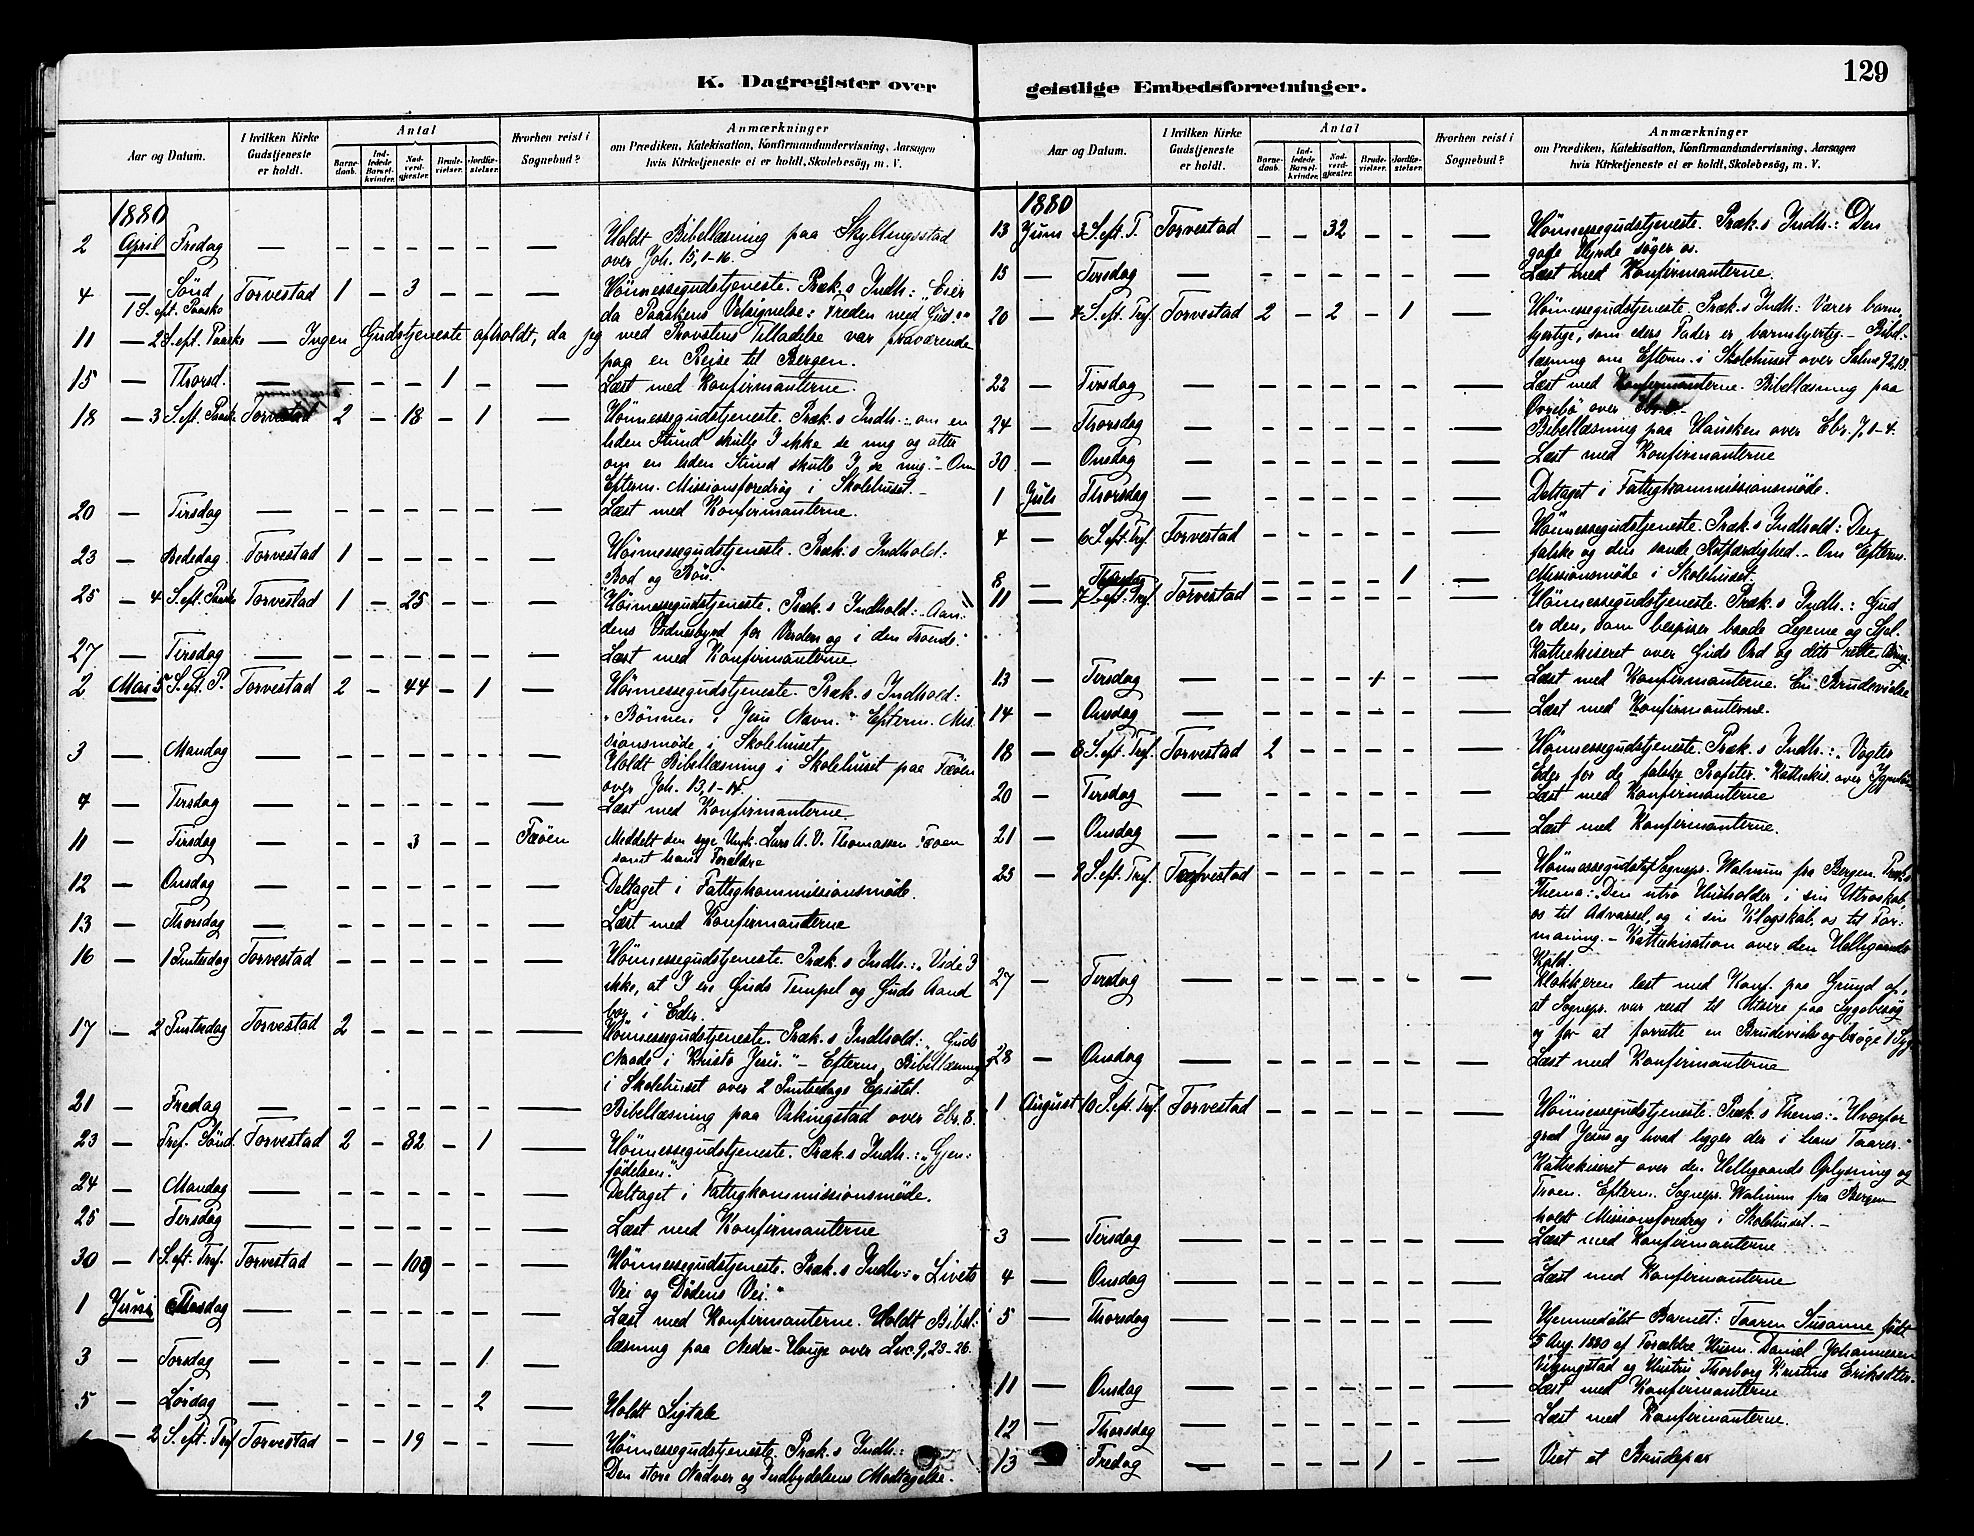 K. Dagregister over
geistlige Embedsforretninger.
129
Aar og Datum.
I hvilken Kirke Gudstjeneste er holdt.
Antal
Barnedaab.
Indledede Barselkvinder.
Nadverdgjæster.
Brudevielser.
Jordfæstelser.
Hvorhen reist i Sognebud?
Anmærkninger
om Prædiken, Katekisation, Konfirmandundervisning, Aarsagen
hvis Kirketjeneste ei er holdt, Skolebesøg, m. V.
1880
2 April Fredag — — — — — — — Holdt Bibellæsning paa Skyltingsstad
over Joh. 15, 1-16.
4 — Sønd Torvestad 1 — 3 — — — Høimessegudstjeneste. Præk.s Indh.: "Eier
1 S. eft. Paaske da Paaskens Velsignelse: Freden med Gud."
11 — 2 S. eft. Paaske — Ingen Gudstjeneste afholdt, da jeg med Provstens Tilladelse var fraværende
paa en Reise til Bergen.
15 — Thorsd. — — — — 1 — — Læst med Konfirmanterne.
18 — 3 S. eft. Paaske Torvestad 2 — 18 — 1 — Høimessegudstjeneste. Præk.s Indh.: om en
liden Stund skulle I ikke se mig og atter
om en liden Stund skulle I se mig." — Om
Efterm. Missionsforedrag i Skolehuset. —
20 — Tirsdag — — — — — — — Læst med Konfirmanterne.
23 — Bededag Torvestad 1 — — — — — Høimessegudstjeneste. Præk.s Indhold:
Bod og Bøn.
25 — 4 S. eft. Paaske Torvestad 1 — 25 — — — Høimessegudstjeneste. Præk.s Indhold: Aan-
dens Vidnesbyrd for Verden og i den Troende.
27 — Tirsdag — — — — — — — Læst med Konfirmanterne
2 Mai 5 S. eft. P. Torvestad 2 — 44 — 1 — Høimessegudstjeneste. Præk.s Indhold:
"Bønnen i Jesu Navn." Efterm. Mis-
sionsmøde i Skolehuset.
3 — Mandag — — — — — — — Holdt Bibellæsning i Skolehuset paa Feøen
over Joh. 13, 1-17.
4 — Tirsdag — — — — — — — Læst med Konfirmanterne
11 — Tirsdag — — — 3 — — Feøen Meddelt den syge Ungk. Lars A. V. Thomassen Feøen
samt hans Forældre
12 — Onsdag — — — — — — — Deltaget i Fattigkommissionsmøde.
13 — Thorsdag — — — — — — — Læst med Konfirmanterne
16 — 1 Pintsedag Torvestad — — — — — — Høimessegudstjeneste. Præk.s Indh.: "Vide I
ikke, at I ere Guds Tempel og Guds Aand
bor i Eder.
17 — 2 Pintsedag Torvestad 2 — — — — — Høimessegudstjeneste. Præk.s Indhold: "Guds
Naade i Kristo Jesu." — Efterm. Bibellæsning
i Skolehuset over 2 Pintsedags Epistel.
21 — Fredag — — — — — — — Bibellæsning paa Vikingstad over Ebr. 8.
23 — Tref. Sønd. Torvestad 2 — 82 — 1 — Høimessegudstjeneste. Præk.s Indh.: "Gjen-
fødelsen".
24 — Mandag — — — — — — — Deltaget i Fattigkommissionsmøde.
25 — Tirsdag — — — — — — — Læst med Konfirmanterne
30 — 1 S. eft. Tref. Torvestad — — 109 — — — Høimessegudstjeneste. Præk.s Indh.: "Livets
Vei og Dødens Vei."
1 Juni Tirsdag — — — — — — — Læst med Konfirmanterne. Holdt Bibel-
læsning paa Nedre-Hauge over Luc. 9, 23-26.
3 — Torsdag — — — — — 1 —
5 — Lørdag — — — — — 2 — Holdt Ligtale
— 2 S. eft. Tref Torvestad — — 19 — — — Høimessegudstjeneste. Præk.s Indh.:
Den store Nadver og Indbydelsens Modtagelse.
Aar og Datum.
I hvilken Kirke Gudstjeneste er holdt.
Antal
Barnedaab.
Indledede Barselkvinder.
Nadverdgjæster.
Brudevielser.
Jordfæstelser.
Hvorhen reist i Sognebud?
Anmærkninger
om Prædiken, Katekisation, Konfirmandundervisning, Aarsagen
hvis Kirketjeneste ei er holdt, Skolebesøg, m. V.
1880
13 Juni 3 S. eft. T. Torvestad — — 32 — — — Høimessegudstjeneste. Præk.s Indh.: Den
gode Hyrde søger os.
15 — Tirsdag — — — — — — — Læst med Konfirmanterne.
20 — 4 S. eft. Tref. Torvestad 2 — 2 — 1 — Høimessegudstjeneste. Præk.s Indh: Værer barm-
hjertige, som eders Fader er barmhjertig. — Bibel-
læsning om Efterm. i Skolehuset over Salme 92,13.
22 — Tirsdag — — — — — — — Læst med Konfirmanterne. Bibellæsning paa
Øvrebø over Ebr.
24 — Thorsdag — — — — — — — Bibellæsning paa Hausken over Ebr. 7, 1-4.
30 — Onsdag — — — — — — — Læst med Konfirmanterne
1 Juli Thorsdag — — — — — — — Deltaget i Fattigkommissionsmøde.
4 — 6 S. eft. Tref Torvestad — — — — — — Høimessegudstjeneste. Præk.s Indhold: Den
falske og den sande Retfærdighed. — Om Efterm.
Missionsmøde i Skolehuset
8 — Thorsdag — — — — — 1 —
11 — 7 S. eft. Tref. Torvestad — — — — — — Høimessegudstjeneste. Præk.s Indh.: Gud
er den, som bespiser baade Legeme og Sjæl.
Kathekiseret over Guds Ord og dets rette Brug.
13 — Tirsdag — — — — 1 — — Læst med Konfirmanterne. En Brudevielse
14 — Onsdag — — — — — — — Læst med Konfirmanterne.
18 — 8 S. eft. Tref. Torvestad 2 — — — — — Høimessegudstjeneste. Præk.s Indh.: "Vogter
Eder for de falske Profeter." Kathekis. over
20 — Tirsdag — — — — — — — Læst med Konfirmanterne
21 — Onsdag — — — — — — — Læst med Konfirmanterne.
25 — 9 S. eft. Tref. Torvestad — — — — — — Høimessegudstj. Sognepr. Walnum fra Bergen. Præk.s
Thema: Den utro Husholder i sin Utroskab,
os til Advarsel, og i sin Klogskab, os til For-
maning. — Kathekisation over den Helligaands
Kald
27 — Tirsdag — — — — — — — Klokkeren læst med Konf. paa Grund af,
at Sognepr. var reist til Utsire paa Sygebesøg
og for at forrette en Brudevielse og besøge 1 Syg
28 — Onsdag — — — — — — — Læst med Konfirmanterne
1 August 10 S. eft. Tref. Torvestad — — — — — — Høimessegudstjeneste. Præk.s Thema: "Hvorfor
græd Jesus og hvad ligger der i hans Taarer."
Kathekiseret over den Helligaands Oplysning og
Troen. Efterm. Sognepr. Walnum fra Bergen
holdt Missionsforedrag i Skolehuset. —
3 — Tirsdag — — — — — — — Læst med Konfirmanterne
4 — Onsdag — — — — — — — Læst med Konfirmanterne
5 — Thorsdag — — — — — — — Hjemmedøbt Barnet: Taaren Susanne født
5 Aug. 1880 af Forældre Husm. Daniel Johannesen
Vikingstad og Hustru Thorborg Kristine Eriksdtter.
11 — Onsdag — — — — — — — Læst med Konfirmanterne
12 — Thorsdag — — — — — — — Læst med Konfirmanterne.
13 — Fredag — — — — 1 — — Viet et Brudepar